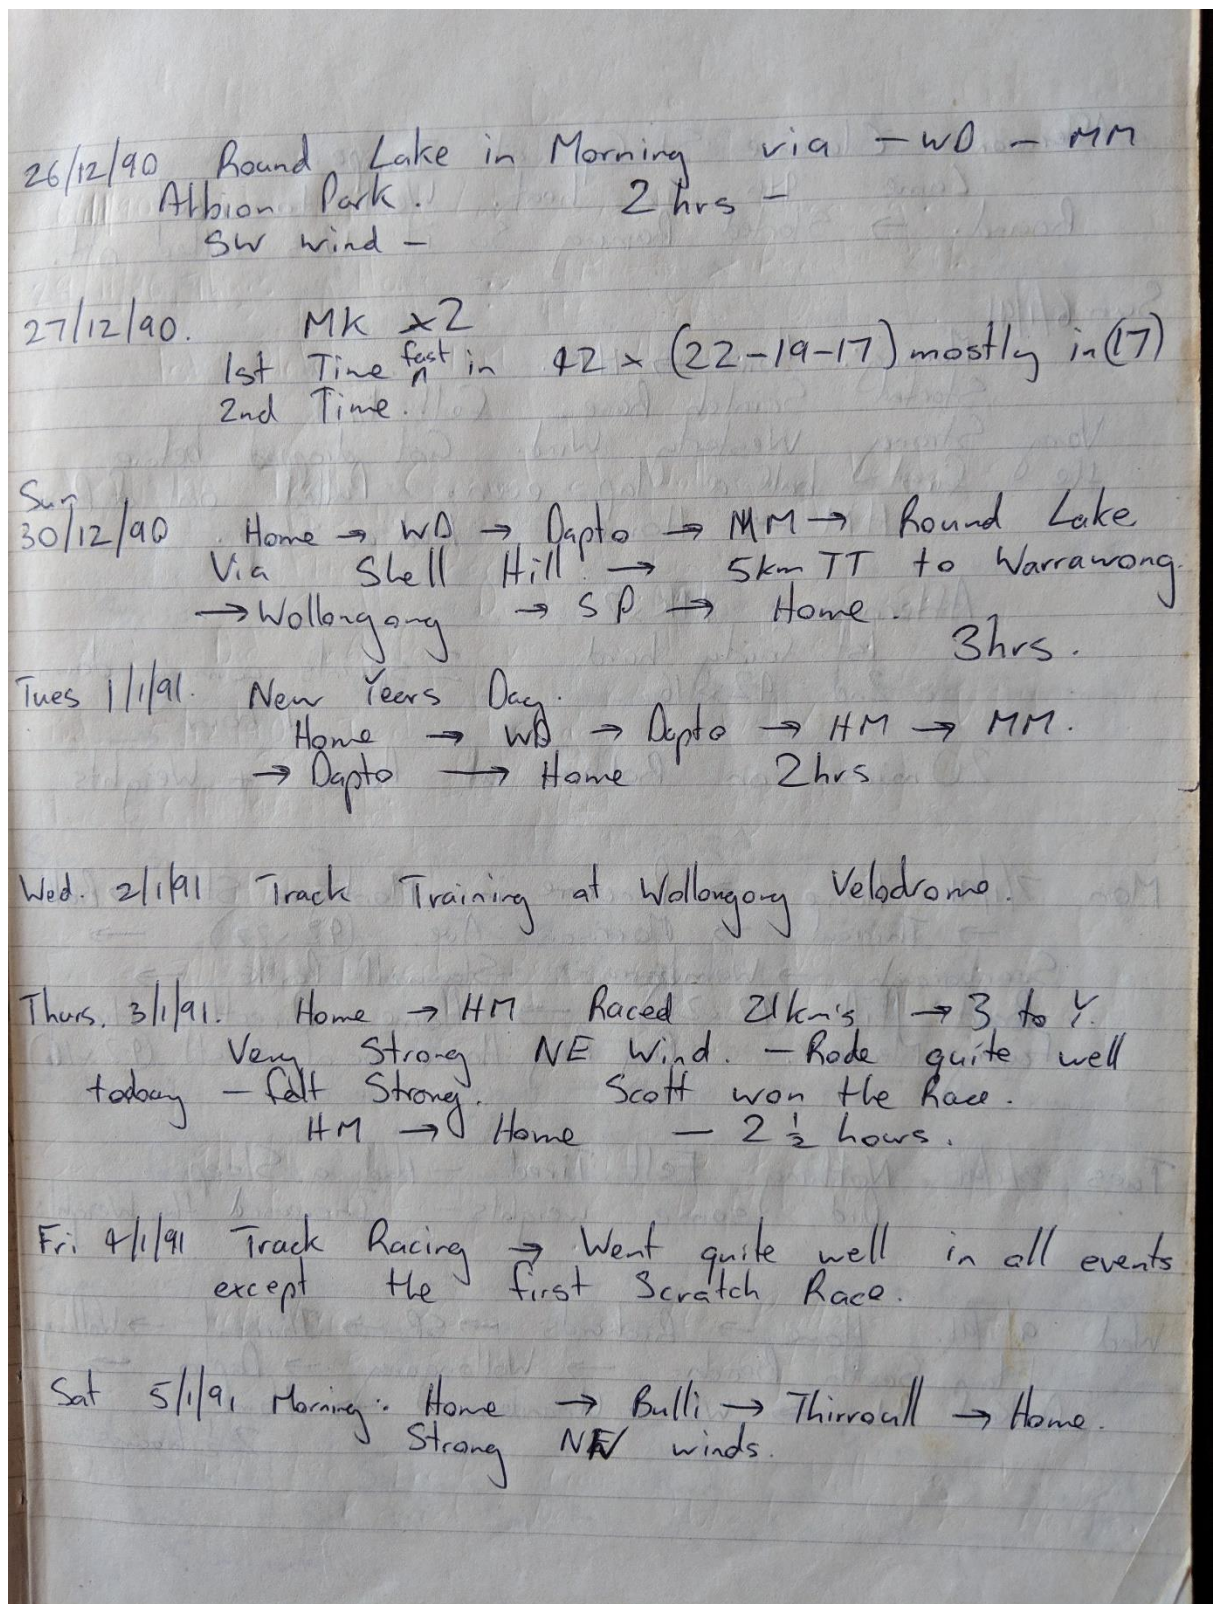 26/12/90 Round Lake in Morning via - WD - MM
Albion Park. 2 hrs -
SW wind -
27/12/90. MK x2
1st Time fast in 42 x (22-19-17) mostly in (17)
2nd Time.
Sun
30/12/90 Home → WD → Dapto → MM → Round Lake
Via Shell Hill → 5km TT to Warrawong.
→ Wollongong → SP → Home.
3hrs.
Tues 1/1/91. New Years Day.
Home → WD → Dapto → HM → MM.
→ Dapto → Home 2hrs
Wed. 2/1/91 Track Training at Wollongong Velodrome.
Thurs. 3/1/91. Home → HM Raced 21km's → 3 to Y.
Very Strong NE Wind. - Rode quite well
today - felt Strong. Scott won the Race.
HM → Home - 2 ½ hours.
Fri 4/1/91 Track Racing → Went quite well in all events
except the first Scratch Race.
Sat 5/1/91 Morning: Home → Bulli → Thirroull → Home.
Strong winds.